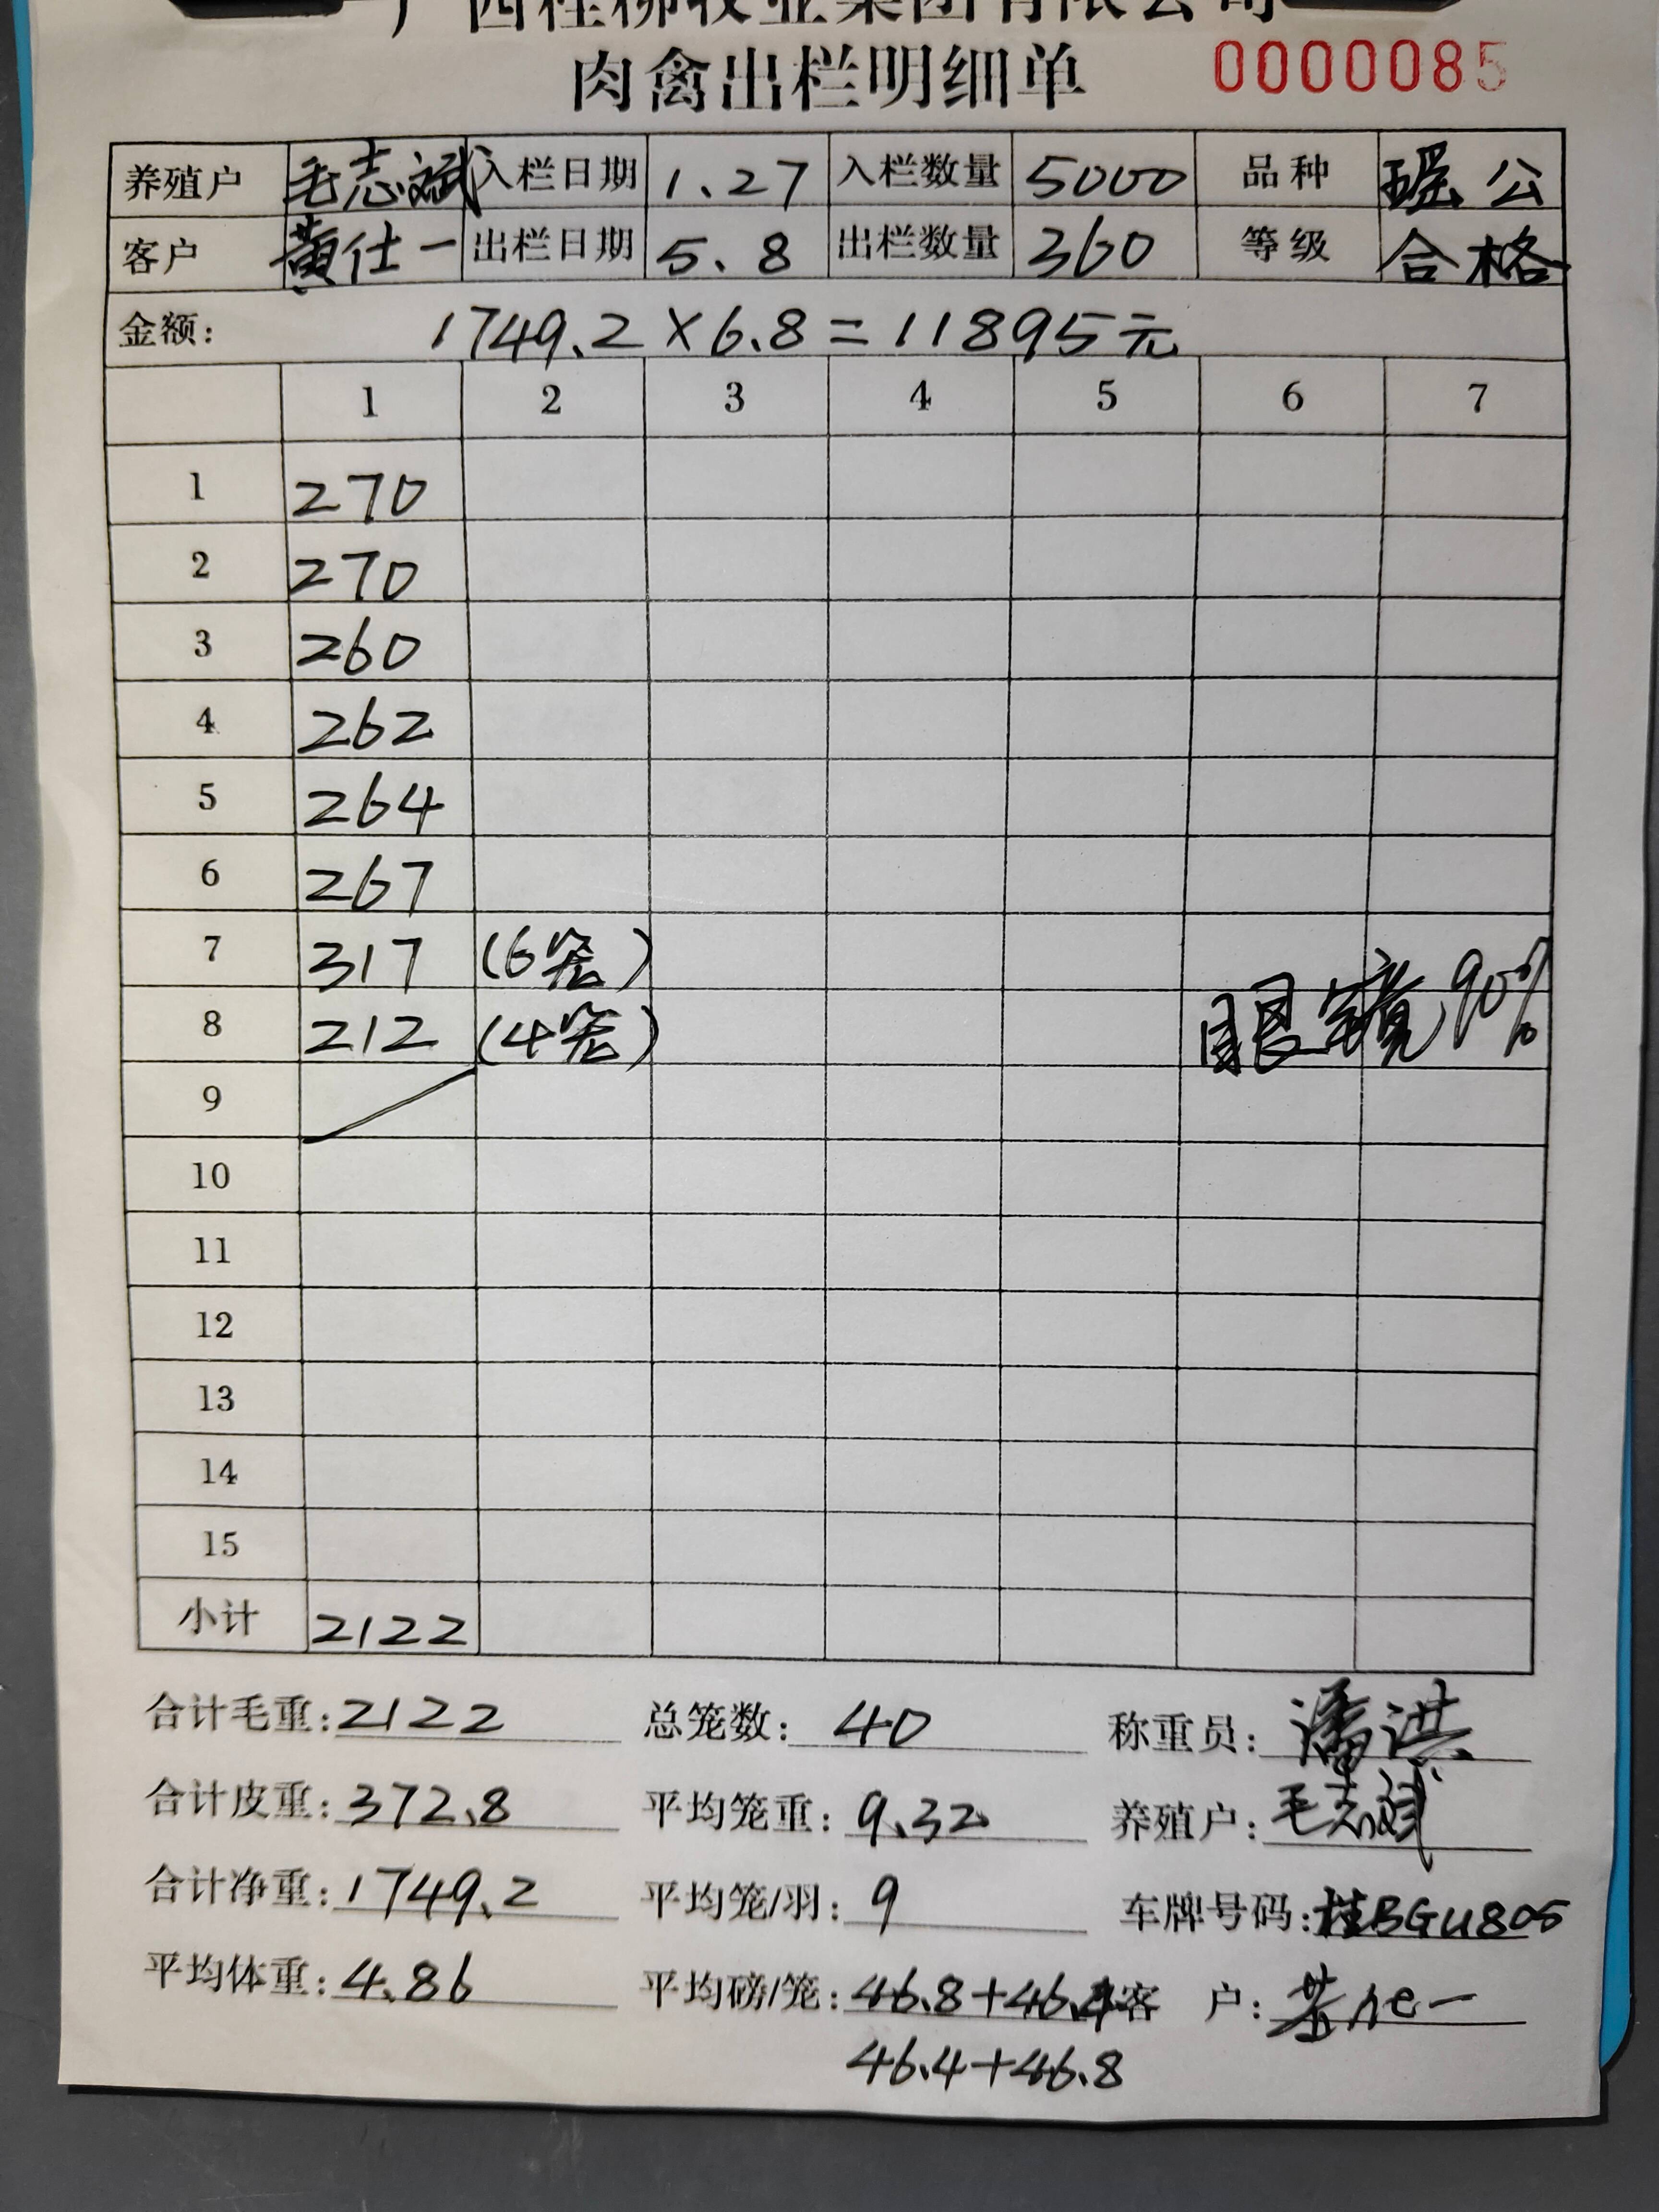 广西桂柳牧业集团有限公司
肉禽出栏明细单 0000085
养殖户 毛志斌 入栏日期 1.27 入栏数量 5000 品种 瑶公
客户 黄仕一 出栏日期 5.8 出栏数量 360 等级 合格
金额: 1749.2×6.8=11895元
1 2 3 4 5 6 7
1 270
2 270
3 260
4 262
5 264
6 267
7 317 (6笼)
8 212 (4笼) 眼镜90%
9
10
11
12
13
14
15
小计 2122
合计毛重: 2122 总笼数: 40 称重员: 潘洪
合计皮重: 372.8 平均笼重: 9.32 养殖户: 毛志斌
合计净重: 1749.2 平均笼/羽: 9 车牌号码: 桂BGU805
平均体重: 4.86 平均磅/笼: 46.8+46.4 客 户: 黄仕一
46.4+46.8